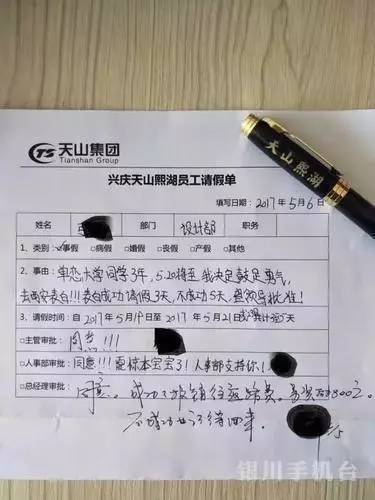 天山集团
Tianshan Group
天山熙湖
兴庆天山熙湖员工请假单
填写日期:2017年5月6日
姓名 部门 设计部 职务
1、类别:☑事假 □病假 □婚假 □丧假 □产假 □其他
2、事由:单恋大学同学3年,5.20将至 我决定鼓足勇气,
去西安表白!!!表白成功请假3天,不成功5天,恳领导批准!
3、请假时间:自2017年5月19日至2017年5月21日或 共计 5天
□主管审批: 同意!!!
□人事部审批: 同意!!!原标本宝宝了!人事部支持你!
□总经理审批: 同意。成功 报销往返路费。 800元。
不成功 回来。
银川手机台